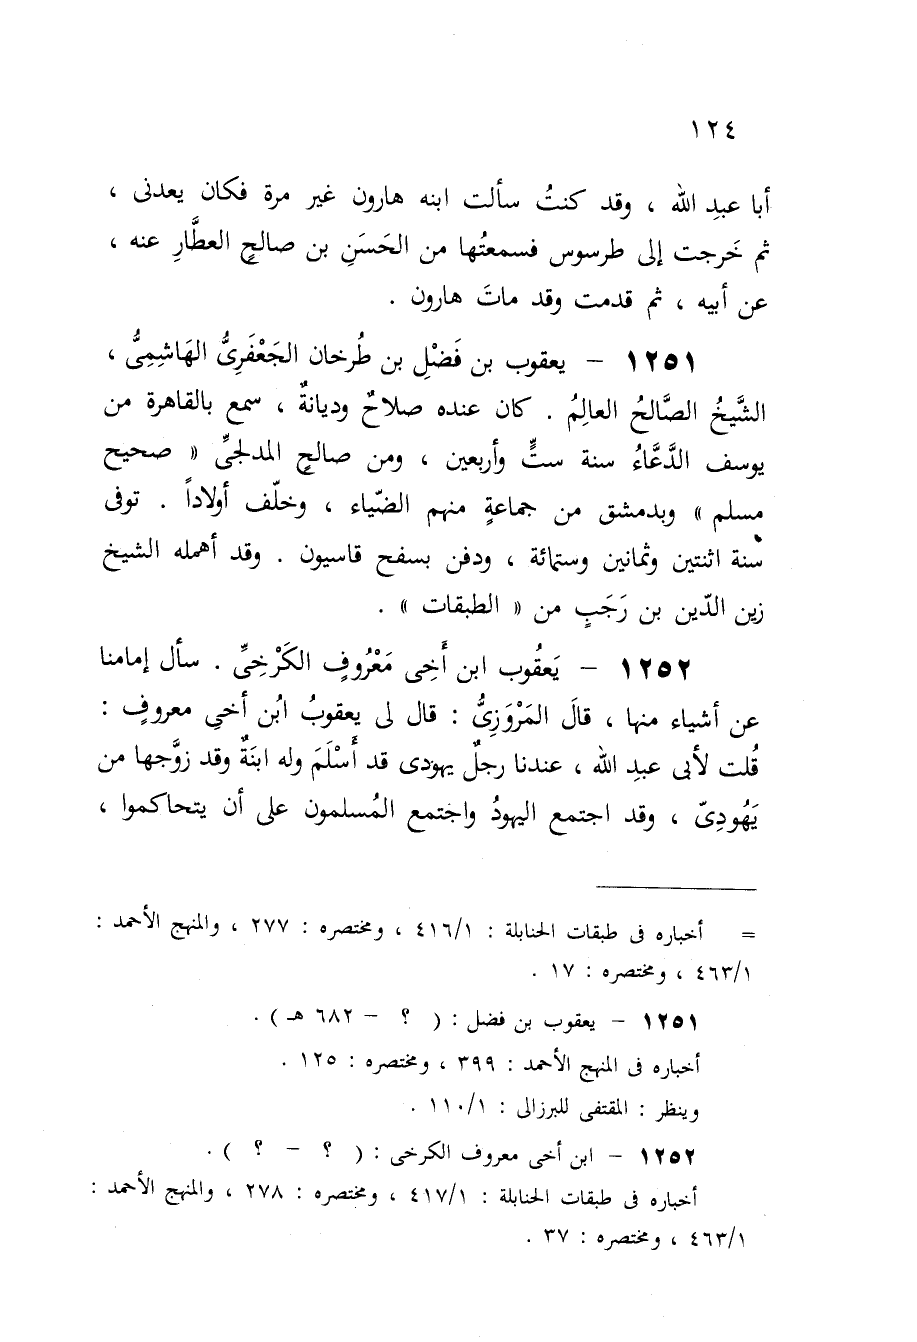 ١٢٤
أبا عبدِ الله ، وقد كنتُ سألت ابنه هارون غير مرة فكان يعدنى ،
ثم خَرجت إلى طرسوس فسمعتُها من الحَسَنِ بن صالحٍ العطَّارِ عنه ،
عن أبيه ، ثم قدمت وقد ماتَ هارون .
١٢٥١ – يعقوب بن فَضْلِ بن طُرخان الجَعْفَرِىُّ الهَاشِمِىُّ ،
الشَّيخُ الصَّالحُ العالِمُ . كان عنده صلاحٌ وديانةٌ ، سمع بالقاهرة من
يوسف الدَّعَّاءُ سنة ستٍّ وأربعين ، ومن صالحٍ المدلجىِّ « صحيح
مسلم » وبدمشق من جماعةٍ منهم الضّياء ، وخلّف أولاداً . توفى
سنة اثنتين وثمانين وستمائة ، ودفن بسفح قاسيون . وقد أهمله الشيخ
زين الدّين بن رَجَبٍ من « الطبقات » .
١٢٥٢ – يَعقُوب ابن أَخِى مَعْرُوفٍ الكَرْخِىِّ . سأل إمامنا
عن أشياء منها ، قالَ المَرْوَزِىُّ : قال لى يعقوبُ ابُن أخىِ معروفٍ :
قُلت لأبى عبدِ الله ، عندنا رجلٌ يهودى قد أَسْلَمَ وله ابنَةٌ وقد زوَّجها من
يَهُودِىّ ، وقد اجتمع اليهودُ واجتمع المُسلمون على أن يتحاكموا ،
= أخباره فى طبقات الحنابلة : ٤١٦/١ ، ومختصره : ٢٧٧ ، والمنهج الأحمد :
٤٦٣/١ ، ومختصره : ١٧ .
١٢٥١ – يعقوب بن فضل : ( ؟ – ٦٨٢ هـ ) .
أخباره فى المنهج الأحمد : ٣٩٩ ، ومختصره : ١٢٥ .
وينظر : المقتفى للبرزالى : ١١٠/١ .
١٢٥٢ – ابن أخى معروف الكرخى : ( ؟ – ؟ ) .
أخباره فى طبقات الحنابلة : ٤١٧/١ ، ومختصره : ٢٧٨ ، والمنهج الأحمد :
٤٦٣/١ ، ومختصره : ٣٧ .